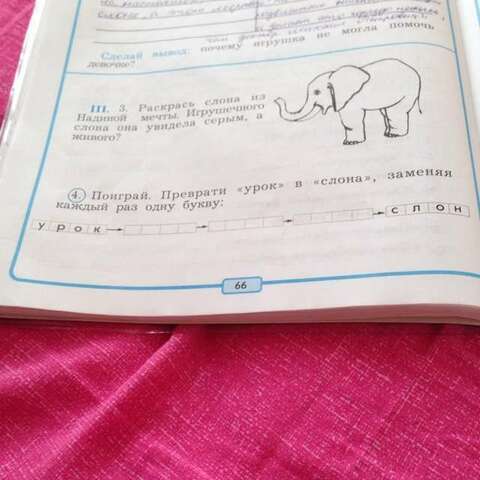 Сделай вывод: почему игрушка не могла помочь
девочке?
III. 3. Раскрась слона из
Надиной мечты. Игрушечного
слона она увидела серым, а
живого?
4. Поиграй. Преврати «урок» в «слона», заменяя
каждый раз одну букву:
у р о к с л о н
66